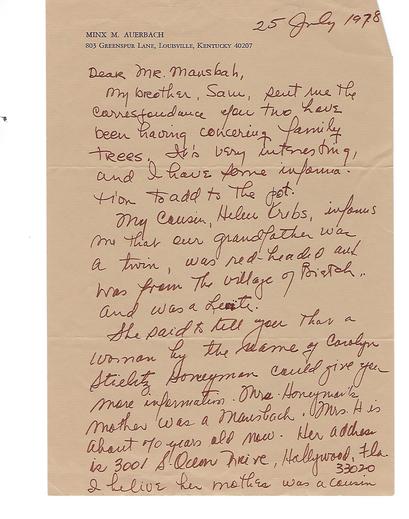 25 July 1978
MINX M. AUERBACH
803 GREENSPUR LANE, LOUISVILLE, KENTUCKY 40207
Dear Mr. Mansbah,
My brother, Sam, sent me the
correspondance you two have
been having concering family
trees. It's very interesting,
and I have some informa-
tion to add to the pot.
My cousin, Helen Krebs, informs
me that our grandfather was
a twin, was red-headed and
was from the village of
and was a
She said to tell you that a
woman by the name of Carolyn
Stieglitz Honeyman could give you
more information. Mrs. Honeyman's
mother was a Mansbach. Mrs. H is
about 70 years old now. Her address
is 3001 S. Ocean Drive, Hallywood, Fla.
33020
I belive her mother was a cousin